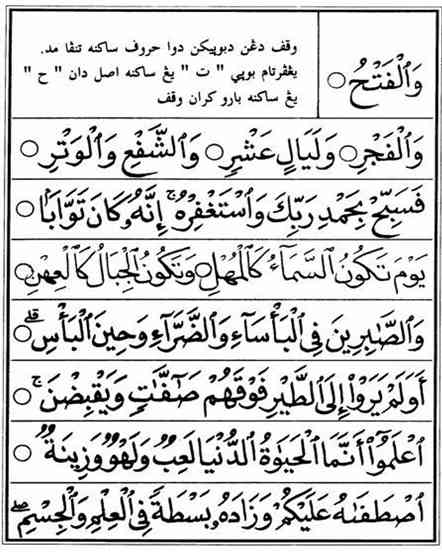 وَٱلْفَتْحُ ○
وقف دڠن دبوپيكن دوا حروف ساكنه تنڤا مد.
يڠڤرتام بوپي " ت " يڠ ساكنه اصل دان " ح "
يڠ ساكنه بارو كران وقف
وَٱلْفَجْرِ ○ وَلَيَالٍ عَشْرٍ ○ وَٱلشَّفْعِ وَٱلْوَتْرِ ○
فَسَبِّحْ بِحَمْدِ رَبِّكَ وَٱسْتَغْفِرْهُ ۚ إِنَّهُۥ كَانَ تَوَّابًا ○
يَوْمَ تَكُونُ ٱلسَّمَآءُ كَٱلْمُهْلِ ○ وَتَكُونُ ٱلْجِبَالُ كَٱلْعِهْنِ ○
وَٱلصَّٰبِرِينَ فِى ٱلْبَأْسَآءِ وَٱلضَّرَّآءِ وَحِينَ ٱلْبَأْسِ ۗ ○
أَوَلَمْ يَرَوْا۟ إِلَى ٱلطَّيْرِ فَوْقَهُمْ صَٰٓفَّٰتٍ وَيَقْبِضْنَ ۚ ○
ٱعْلَمُوٓا۟ أَنَّمَا ٱلْحَيَوٰةُ ٱلدُّنْيَا لَعِبٌ وَلَهْوٌ وَزِينَةٌ ○
ٱصْطَفَىٰهُ عَلَيْكُمْ وَزَادَهُۥ بَسْطَةً فِى ٱلْعِلْمِ وَٱلْجِسْمِ ۖ ○